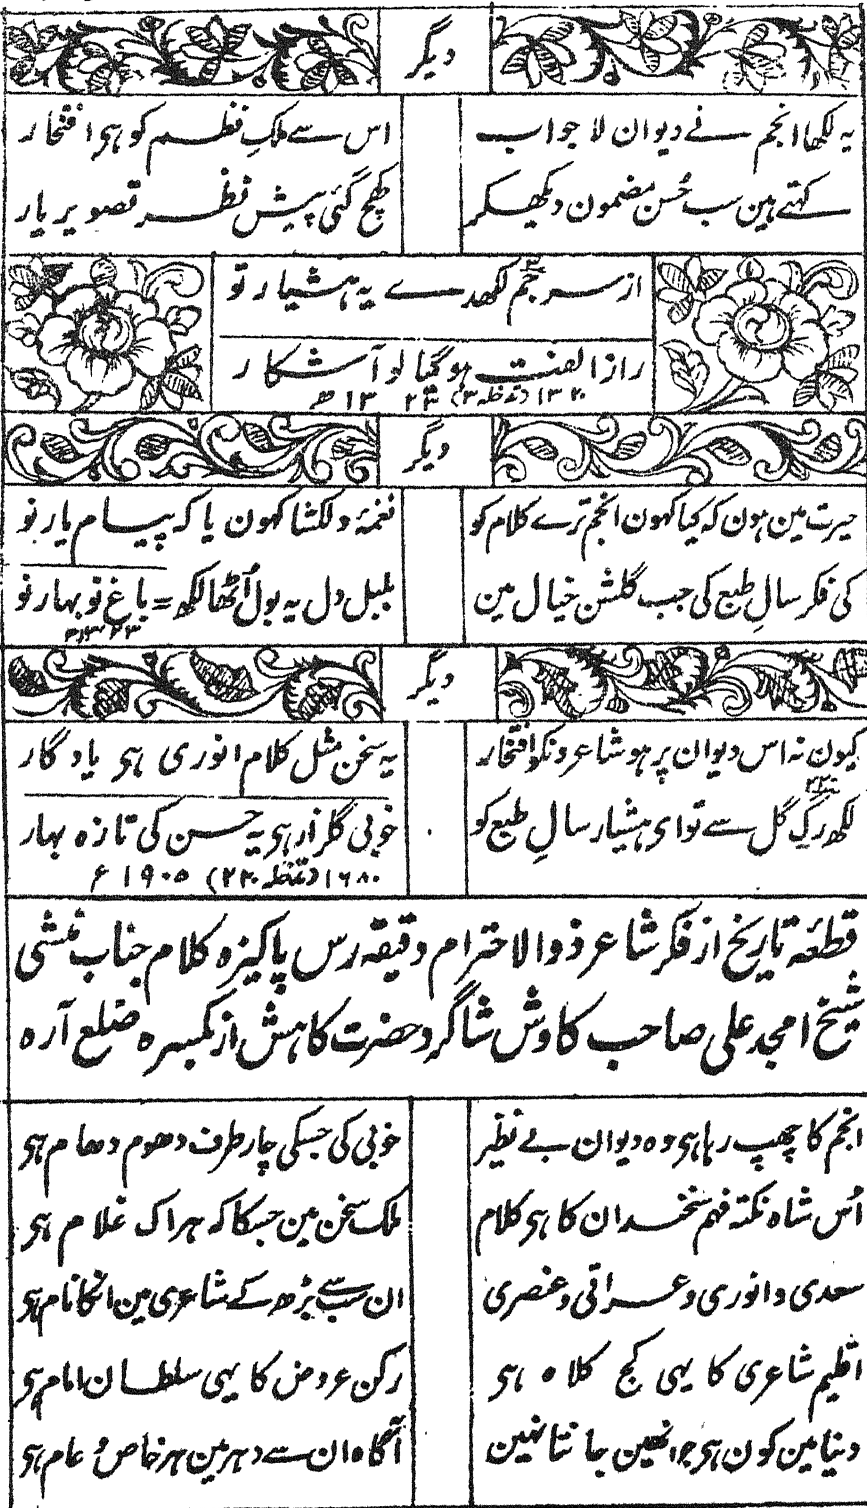 دیگر
یہ لکھا انجم نے دیوان لاجواب
اس سے ملکِ نظم کو ہی افتخار
کہتے ہین سب حُسن مضمون دیکھکر
کھچ گئی پیش نظر تصویر یار
از سر جم لکھدے یہ ہشیار تو
راز الفت ہوگیا لو آشکار
۱۳۲۰ (تدخلہ ۳) ۱۳۲۳ھ
دیگر
حیرت مین ہون کہ کیا کہون انجم ترے کلام کو
نغمۂ دلکشا کہون یا کہ پیام یار نو
کی فکر سالِ طبع کی جب گلشن خیال مین
بلبل دل یہ بول اُٹھا لکھ = باغ نو بہار نو
۱۳۲۳ھ
دیگر
کیون نہ اس دیوان پر ہو شاعرونکو افتخار
یہ سخن مثل کلام انوری ہی یادگار
لکھ رگِ گل سے تو ای ہشیار سالِ طبع کو
خوبی گلزار ہی یہ حسن کی تازہ بہار
۱۶۸۰ (تدخلہ ۲۲۰) ۱۹۰۵ ء
قطعۂ تاریخ از فکر شاعر ذوالاحترام دقیقہ رس پاکیزہ کلام جناب منشی
شیخ امجد علی صاحب کاوش شاگرد حضرت کاہش از بکسرہ ضلع آرہ
انجم کا چھپ رہا ہی وہ دیوان بے نظیر
خوبی کی جسکی چار طرف دھوم دھام ہی
اُس شاہ نکتہ فہم سخندان کا ہی کلام
ملک سخن مین جسکا کہ ہر اک غلام ہی
سعدی و انوری و عراقی و عنصری
ان سب سے بڑھ کے شاعری مین انکا نام ہی
اقلیم شاعری کا یہی کج کلاہ ہی
رکن عروض کا یہی سلطان امام ہی
دنیا مین کون ہی جو انھین جانتا نہین
آگاہ ان سے دہر مین ہر خاص و عام ہی